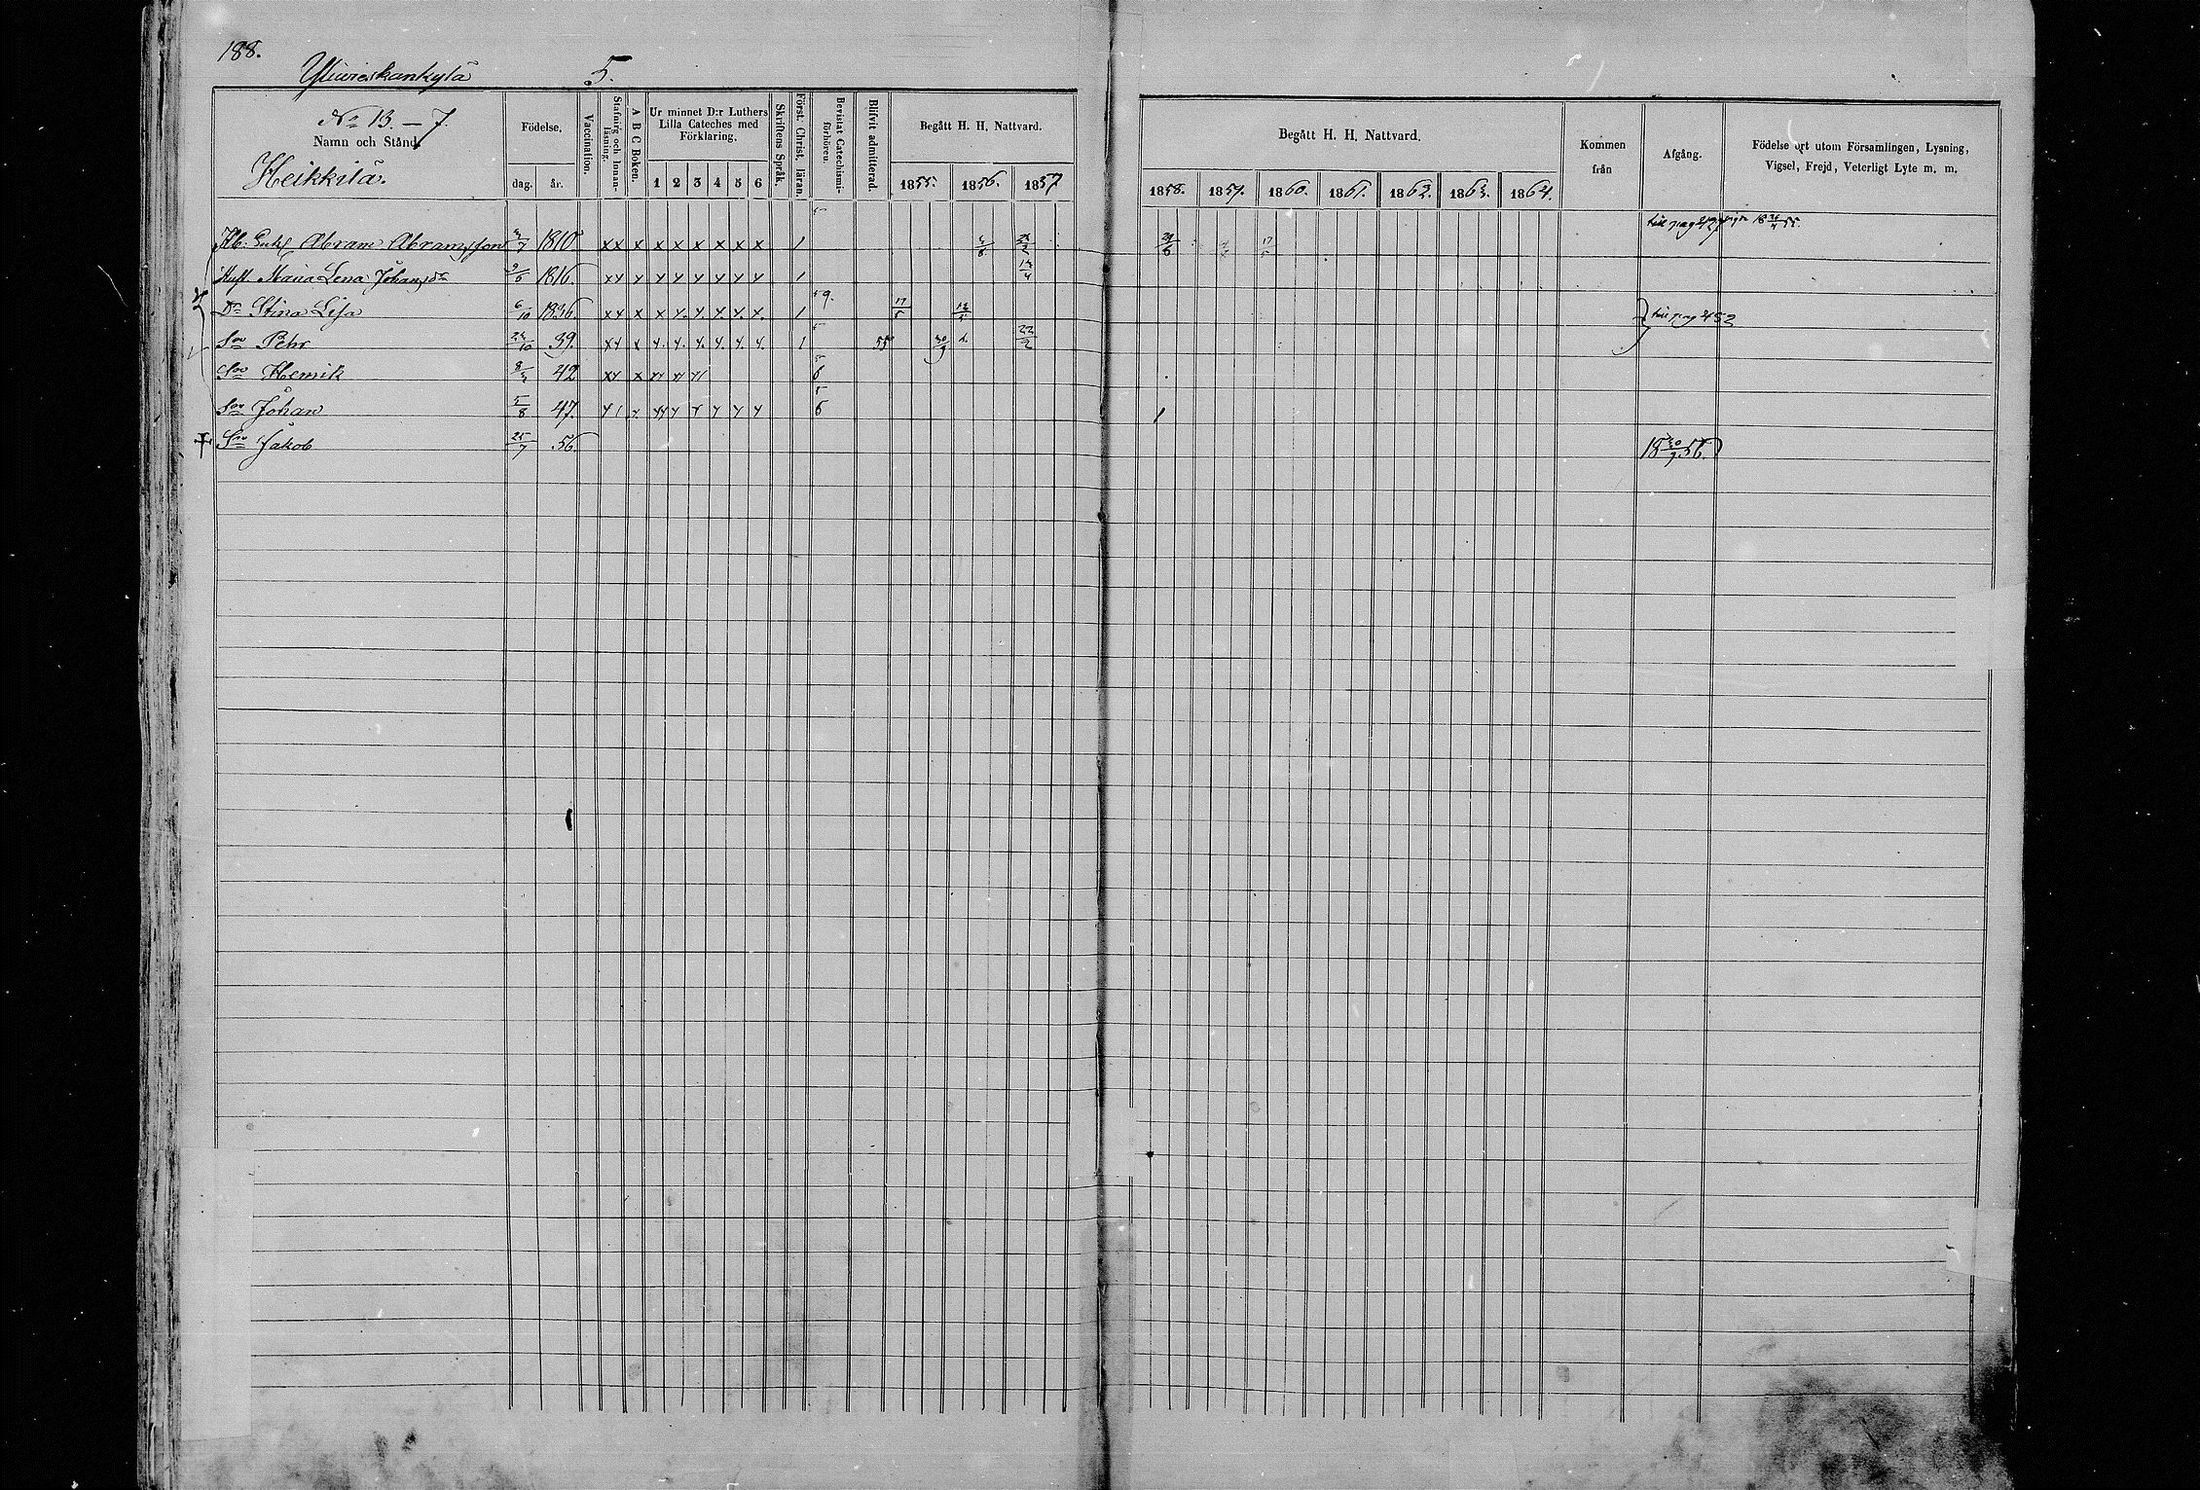 188.
Yliwieskankylä 5.
No 13. – 7.
Namn och Stånd.
Heikkilä.
Födelse.
dag. år.
Vaccination.
Stafning och Innanläsning.
A B C Boken.
Ur minnet D:r Luthers Lilla Cateches med Förklaring.
1 2 3 4 5 6
Skriftens Språk.
Först. Christ. läran.
Bevistat Catechismi-förhören.
Blifvit admitterad.
Begått H. H. Nattvard.
1855. 1856. 1857
Begått H. H. Nattvard.
1858. 1859. 1860. 1861. 1862. 1863. 1864.
Kommen från
Afgång.
Födelse ort utom Församlingen, Lysning, Vigsel, Frejd, Veterligt Lyte m. m.
Abram Abramsson 1810 x x x x x x x x x 1
Hust. Maria Lena Johansdr 9/6 1816. x x x x x x x x x 1
Dr Stina Lisa 6/10 1836. x x x x x x x x x 1 9. 17/5
till pag 452
Son Pehr 24/10 39. x x x x x x x x x 1 55 22/2
Son Henrik 42 x x x
Son Johan 5/8 47. 1
Son Jakob 25/7 56. 18 30/9 56.